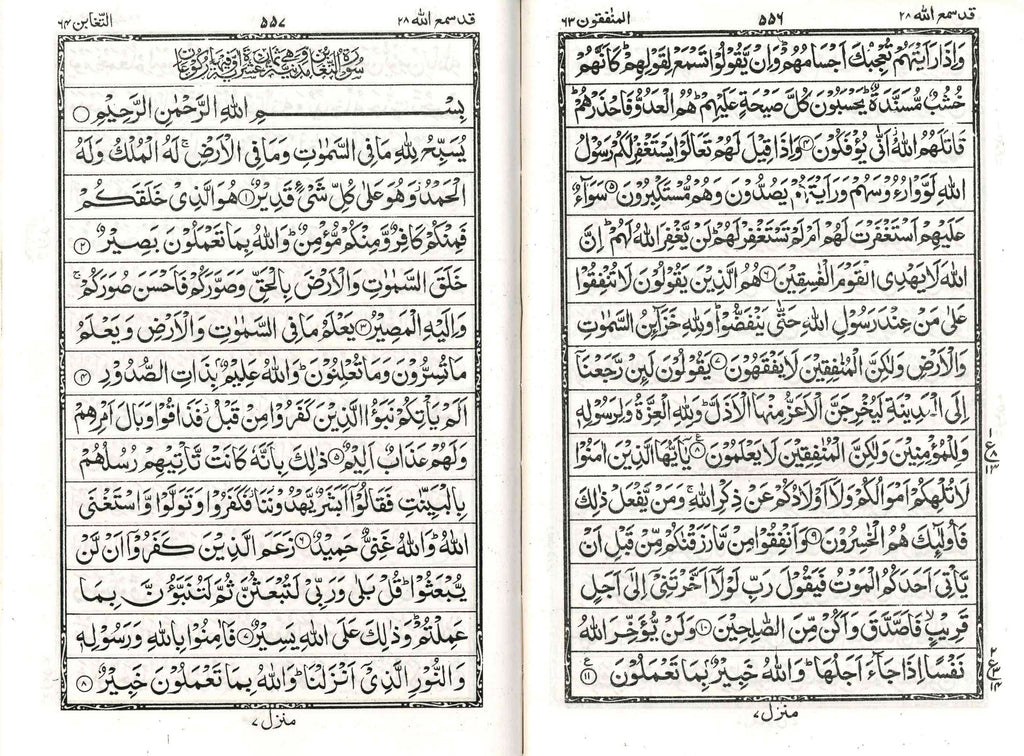 قد سمع الله ٢٨
٥٥٦
المنٰفقون ٦٣
وَاِذَا رَاَيْتَهُمْ تُعْجِبُكَ اَجْسَامُهُمْ ؕ وَاِنْ يَّقُوْلُوْا تَسْمَعْ لِقَوْلِهِمْ ؕ كَاَنَّهُمْ
خُشُبٌ مُّسَنَّدَةٌ ؕ يَحْسَبُوْنَ كُلَّ صَيْحَةٍ عَلَيْهِمْ ؕ هُمُ الْعَدُوُّ فَاحْذَرْهُمْ ؕ
قَاتَلَهُمُ اللّٰهُ ؗ اَنّٰى يُؤْفَكُوْنَ ۝٤ وَاِذَا قِيْلَ لَهُمْ تَعَالَوْا يَسْتَغْفِرْ لَكُمْ رَسُوْلُ
اللّٰهِ لَوَّوْا رُءُوْسَهُمْ وَرَاَيْتَهُمْ يَصُدُّوْنَ وَهُمْ مُّسْتَكْبِرُوْنَ ۝٥ سَوَآءٌ
عَلَيْهِمْ اَسْتَغْفَرْتَ لَهُمْ اَمْ لَمْ تَسْتَغْفِرْ لَهُمْ ؕ لَنْ يَّغْفِرَ اللّٰهُ لَهُمْ ؕ اِنَّ
اللّٰهَ لَا يَهْدِى الْقَوْمَ الْفٰسِقِيْنَ ۝٦ هُمُ الَّذِيْنَ يَقُوْلُوْنَ لَا تُنْفِقُوْا
عَلٰى مَنْ عِنْدَ رَسُوْلِ اللّٰهِ حَتّٰى يَنْفَضُّوْا ؕ وَلِلّٰهِ خَزَآىِٕنُ السَّمٰوٰتِ
وَالْاَرْضِ وَلٰكِنَّ الْمُنٰفِقِيْنَ لَا يَفْقَهُوْنَ ۝٧ يَقُوْلُوْنَ لَىِٕنْ رَّجَعْنَاۤ
اِلَى الْمَدِيْنَةِ لَيُخْرِجَنَّ الْاَعَزُّ مِنْهَا الْاَذَلَّ ؕ وَلِلّٰهِ الْعِزَّةُ وَلِرَسُوْلِهٖ
وَلِلْمُؤْمِنِيْنَ وَلٰكِنَّ الْمُنٰفِقِيْنَ لَا يَعْلَمُوْنَ ۝٨ يٰۤاَيُّهَا الَّذِيْنَ اٰمَنُوْا
لَا تُلْهِكُمْ اَمْوَالُكُمْ وَلَاۤ اَوْلَادُكُمْ عَنْ ذِكْرِ اللّٰهِ ۚ وَمَنْ يَّفْعَلْ ذٰلِكَ
فَاُولٰٓىِٕكَ هُمُ الْخٰسِرُوْنَ ۝٩ وَاَنْفِقُوْا مِنْ مَّا رَزَقْنٰكُمْ مِّنْ قَبْلِ اَنْ
يَّاْتِىَ اَحَدَكُمُ الْمَوْتُ فَيَقُوْلَ رَبِّ لَوْلَاۤ اَخَّرْتَنِىْۤ اِلٰٓى اَجَلٍ
قَرِيْبٍ ۙ فَاَصَّدَّقَ وَاَكُنْ مِّنَ الصّٰلِحِيْنَ ۝١٠ وَلَنْ يُّؤَخِّرَ اللّٰهُ
نَفْسًا اِذَا جَآءَ اَجَلُهَا ؕ وَاللّٰهُ خَبِيْرٌۢ بِمَا تَعْمَلُوْنَ ۝١١
منزل ٧
قد سمع الله ٢٨
٥٥٧
التغابن ٦٤
بِسْمِ اللّٰهِ الرَّحْمٰنِ الرَّحِيْمِ
يُسَبِّحُ لِلّٰهِ مَا فِى السَّمٰوٰتِ وَمَا فِى الْاَرْضِ ۚ لَهُ الْمُلْكُ وَلَهُ
الْحَمْدُ ؗ وَهُوَ عَلٰى كُلِّ شَىْءٍ قَدِيْرٌ ۝١ هُوَ الَّذِىْ خَلَقَكُمْ
فَمِنْكُمْ كَافِرٌ وَّمِنْكُمْ مُّؤْمِنٌ ؕ وَاللّٰهُ بِمَا تَعْمَلُوْنَ بَصِيْرٌ ۝٢
خَلَقَ السَّمٰوٰتِ وَالْاَرْضَ بِالْحَقِّ وَصَوَّرَكُمْ فَاَحْسَنَ صُوَرَكُمْ ۚ
وَاِلَيْهِ الْمَصِيْرُ ۝٣ يَعْلَمُ مَا فِى السَّمٰوٰتِ وَالْاَرْضِ وَيَعْلَمُ
مَا تُسِرُّوْنَ وَمَا تُعْلِنُوْنَ ؕ وَاللّٰهُ عَلِيْمٌۢ بِذَاتِ الصُّدُوْرِ ۝٤
اَلَمْ يَاْتِكُمْ نَبَؤُا الَّذِيْنَ كَفَرُوْا مِنْ قَبْلُ ؗ فَذَاقُوْا وَبَالَ اَمْرِهِمْ
وَلَهُمْ عَذَابٌ اَلِيْمٌ ۝٥ ذٰلِكَ بِاَنَّهٗ كَانَتْ تَّاْتِيْهِمْ رُسُلُهُمْ
بِالْبَيِّنٰتِ فَقَالُوْۤا اَبَشَرٌ يَّهْدُوْنَنَا ؗ فَكَفَرُوْا وَتَوَلَّوْا وَّاسْتَغْنَى
اللّٰهُ ؕ وَاللّٰهُ غَنِىٌّ حَمِيْدٌ ۝٦ زَعَمَ الَّذِيْنَ كَفَرُوْۤا اَنْ لَّنْ
يُّبْعَثُوْا ؕ قُلْ بَلٰى وَرَبِّىْ لَتُبْعَثُنَّ ثُمَّ لَتُنَبَّؤُنَّ بِمَا
عَمِلْتُمْ ؕ وَذٰلِكَ عَلَى اللّٰهِ يَسِيْرٌ ۝٧ فَاٰمِنُوْا بِاللّٰهِ وَرَسُوْلِهٖ
وَالنُّوْرِ الَّذِىْۤ اَنْزَلْنَا ؕ وَاللّٰهُ بِمَا تَعْمَلُوْنَ خَبِيْرٌ ۝٨
منزل ٧